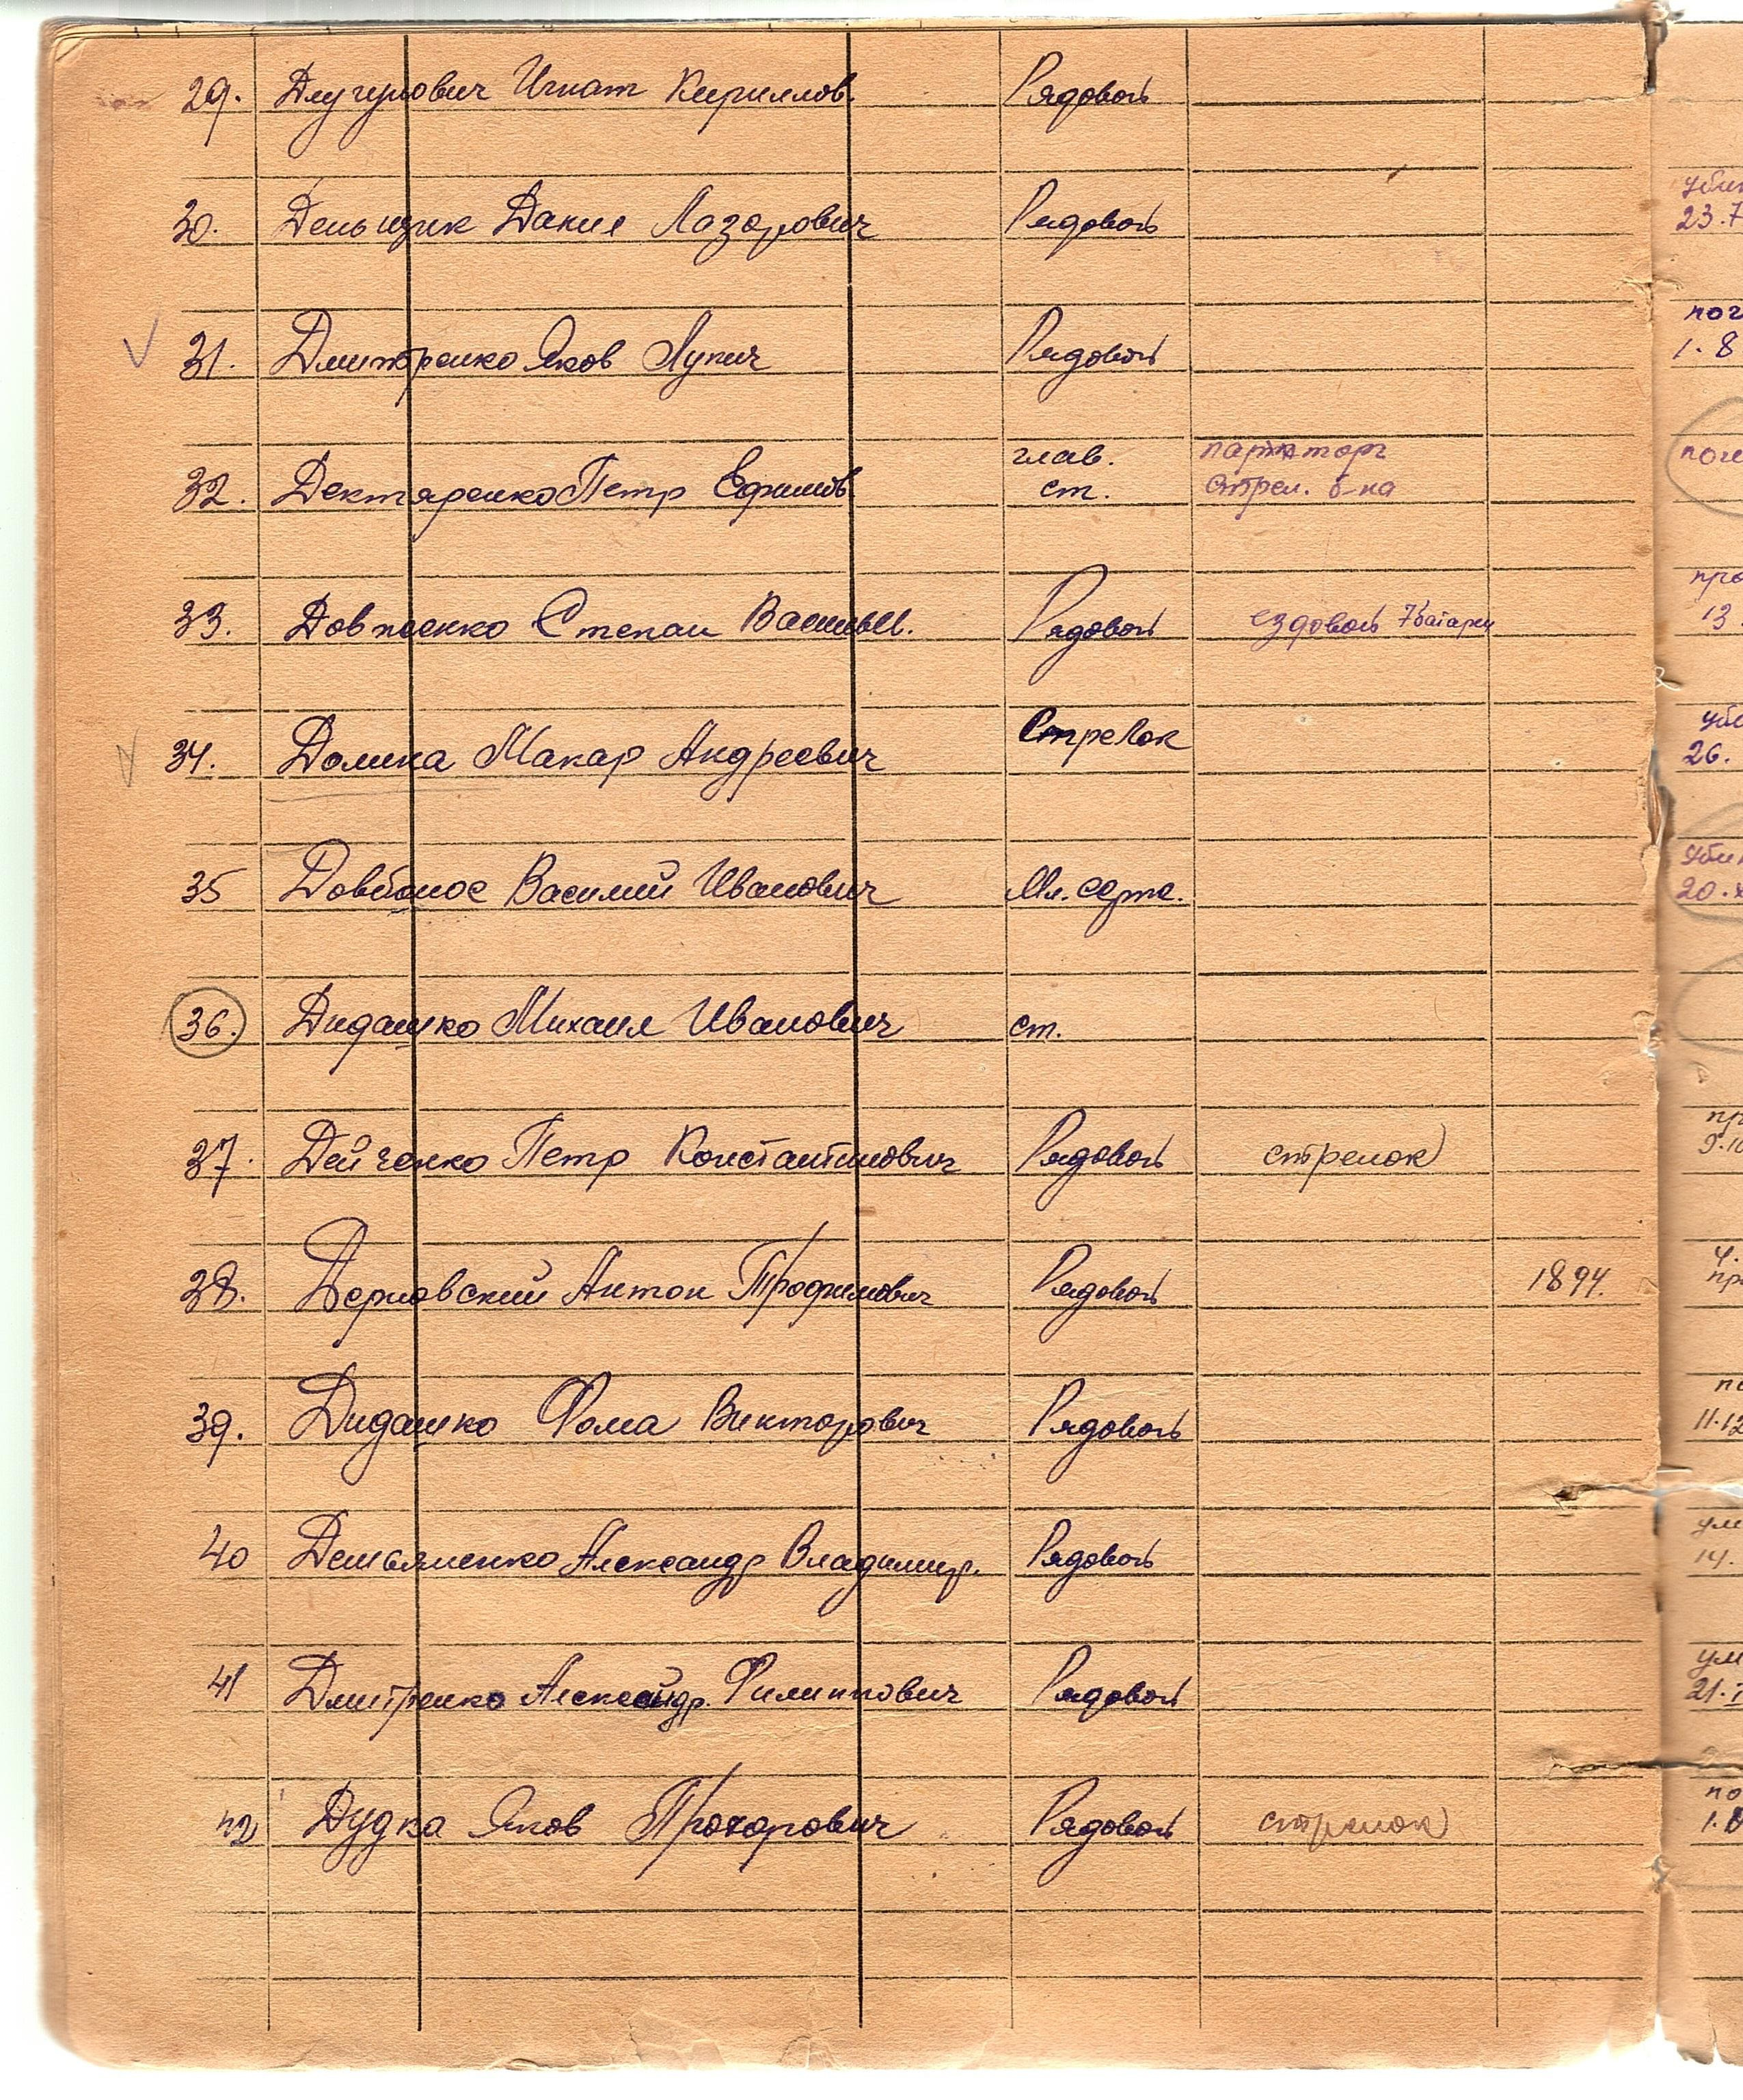 29. Длугунович Игнат Кириллов. Рядовой
30. Деньщик Данил Лазорович Рядовой
31. Дмитренко Яков Лупич Рядовой
глав. парт торг
32. Дектяренко Петр Ефимов. ст. стрел. б-на
33. Довженко Степан Василье. Рядовой ездовой 7 батареи
34. Долина Макар Андреевич Стрелок
35 Довбонос Василий Иванович Мл. серж.
36. Дидашко Михаил Иванович ст.
37. Дейченко Петр Константинович Рядовой стрелок
38. Дерновский Антон Трофимович Рядовой 1894.
39. Дидашко Фома Викторович Рядовой
40 Демьяненко Александр Владимир. Рядовой
41 Дмитренко Александр. Филиппович Рядовой
42 Дудка Яков Прохорович Рядовой стрелок
23.7
1.8
13.
26.
20.
9.10
4.
11.12
14.
21.